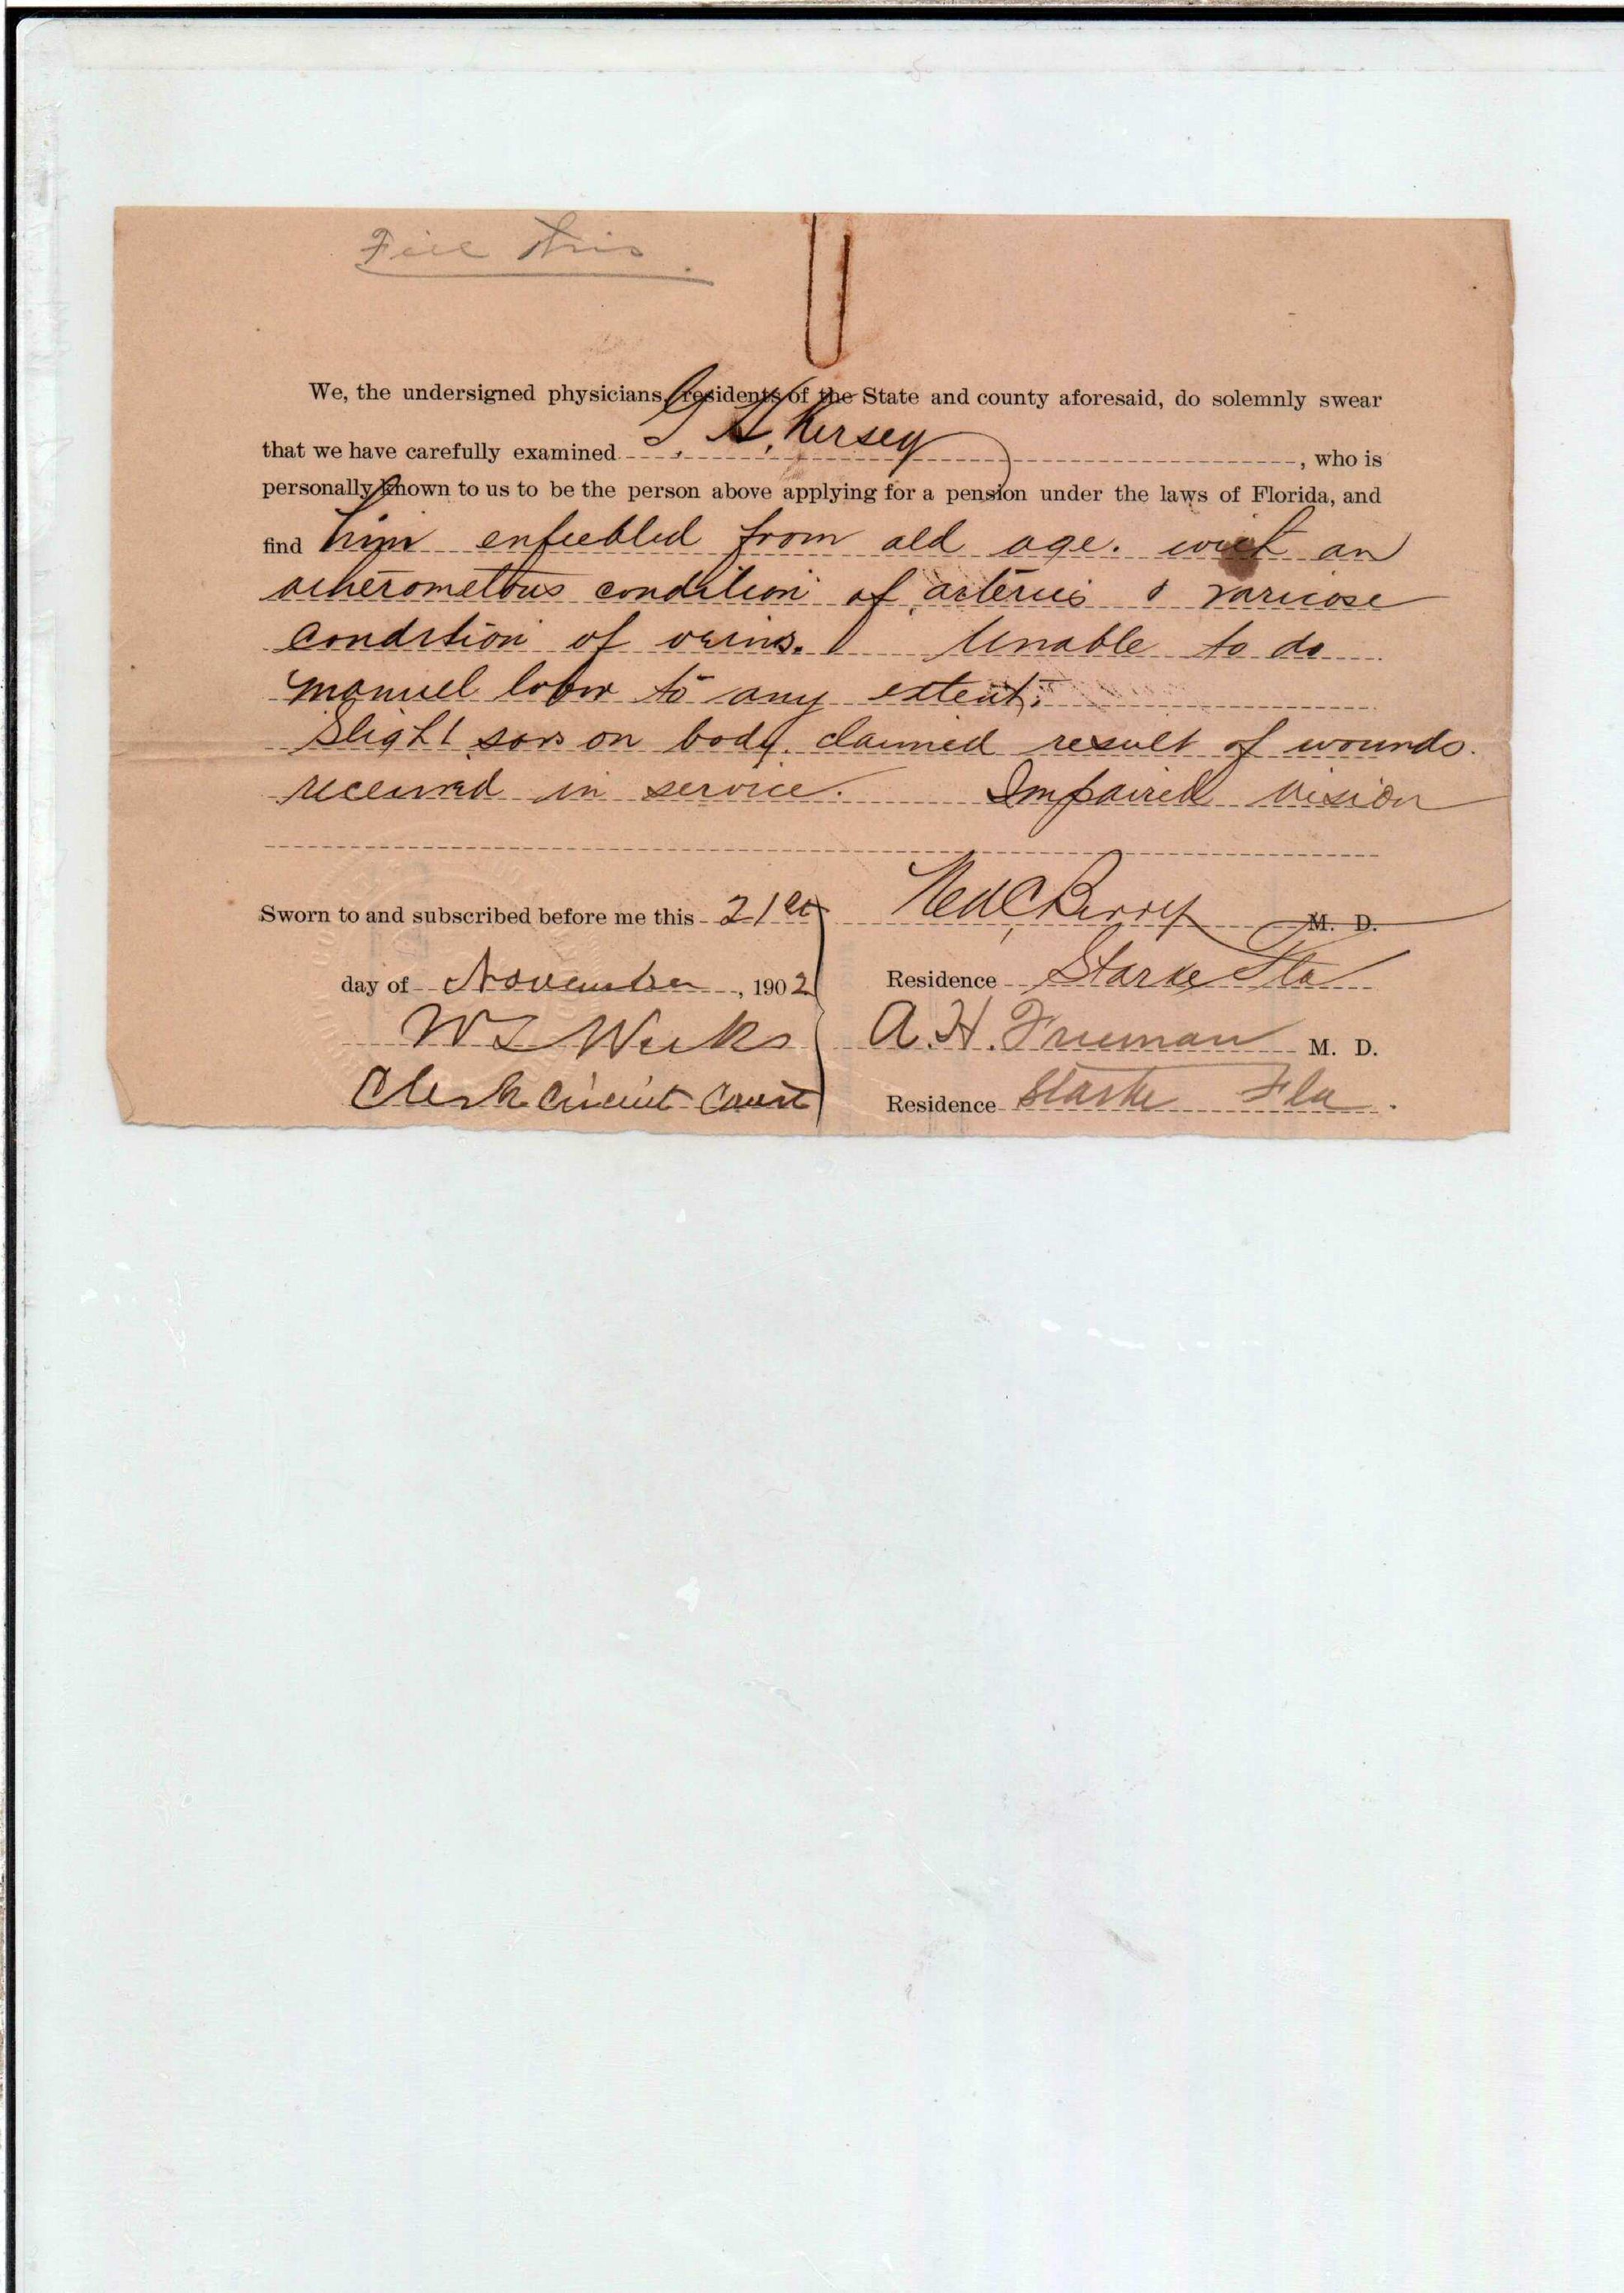 File this.
We, the undersigned physicians, residents of the State and county aforesaid, do solemnly swear
that we have carefully examined G. H. Kersey, who is
personally known to us to be the person above applying for a pension under the laws of Florida, and
find him enfeebled from old age. with an
atherometous condition of arteries & varicose
condition of veins. Unable to do
manuel labor to any extent.
Slight on body. claimed result of wounds.
received in service. Impaired vision
Sworn to and subscribed before me this 21st
day of November, 1902
W L Weeks
Clerk Circuit Court
Berry M. D.
Residence Starke Fla
A. H. Freeman M. D.
Residence Starke Fla.